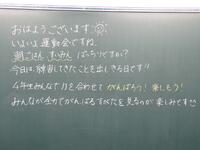 おはようございます
いよいよ運動会ですね。
朝ごはん、すいみん ばっちりですか?
今日は、練習してきたことを出しきる日です!!
4年生みんなで力を合わせて がんばろう! 楽しもう!
みんなが全力でがんばるすがたを見るのが楽しみです